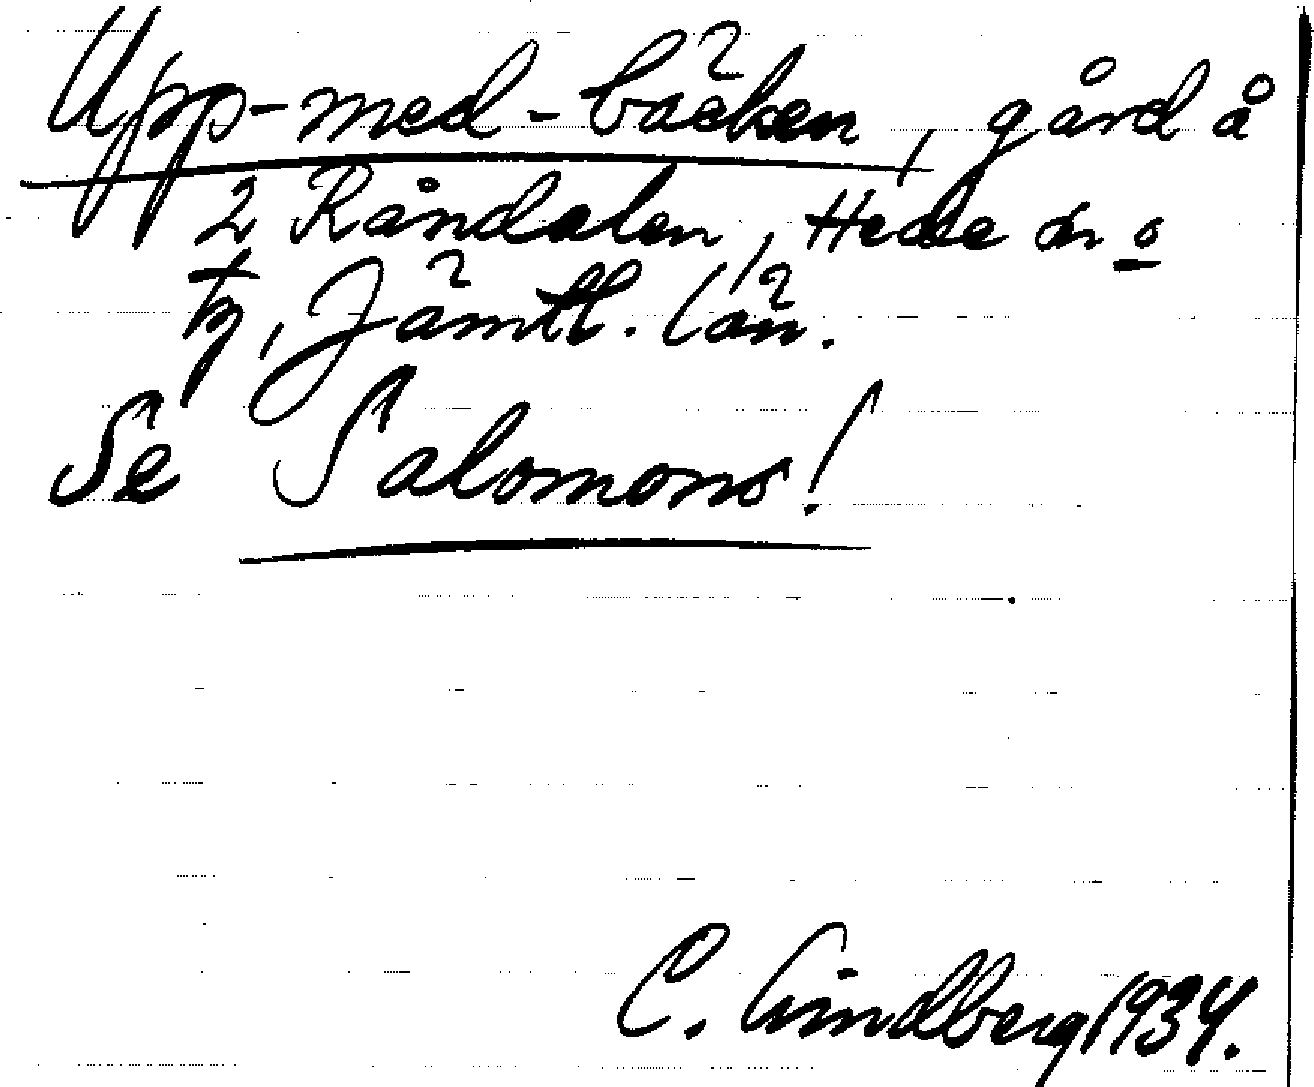 Upp-med-bäcken, gård å
2 Råndalen, Hede sn o
tg, Jämtl. län.
Se Salomons!
C. Lindberg 1934.